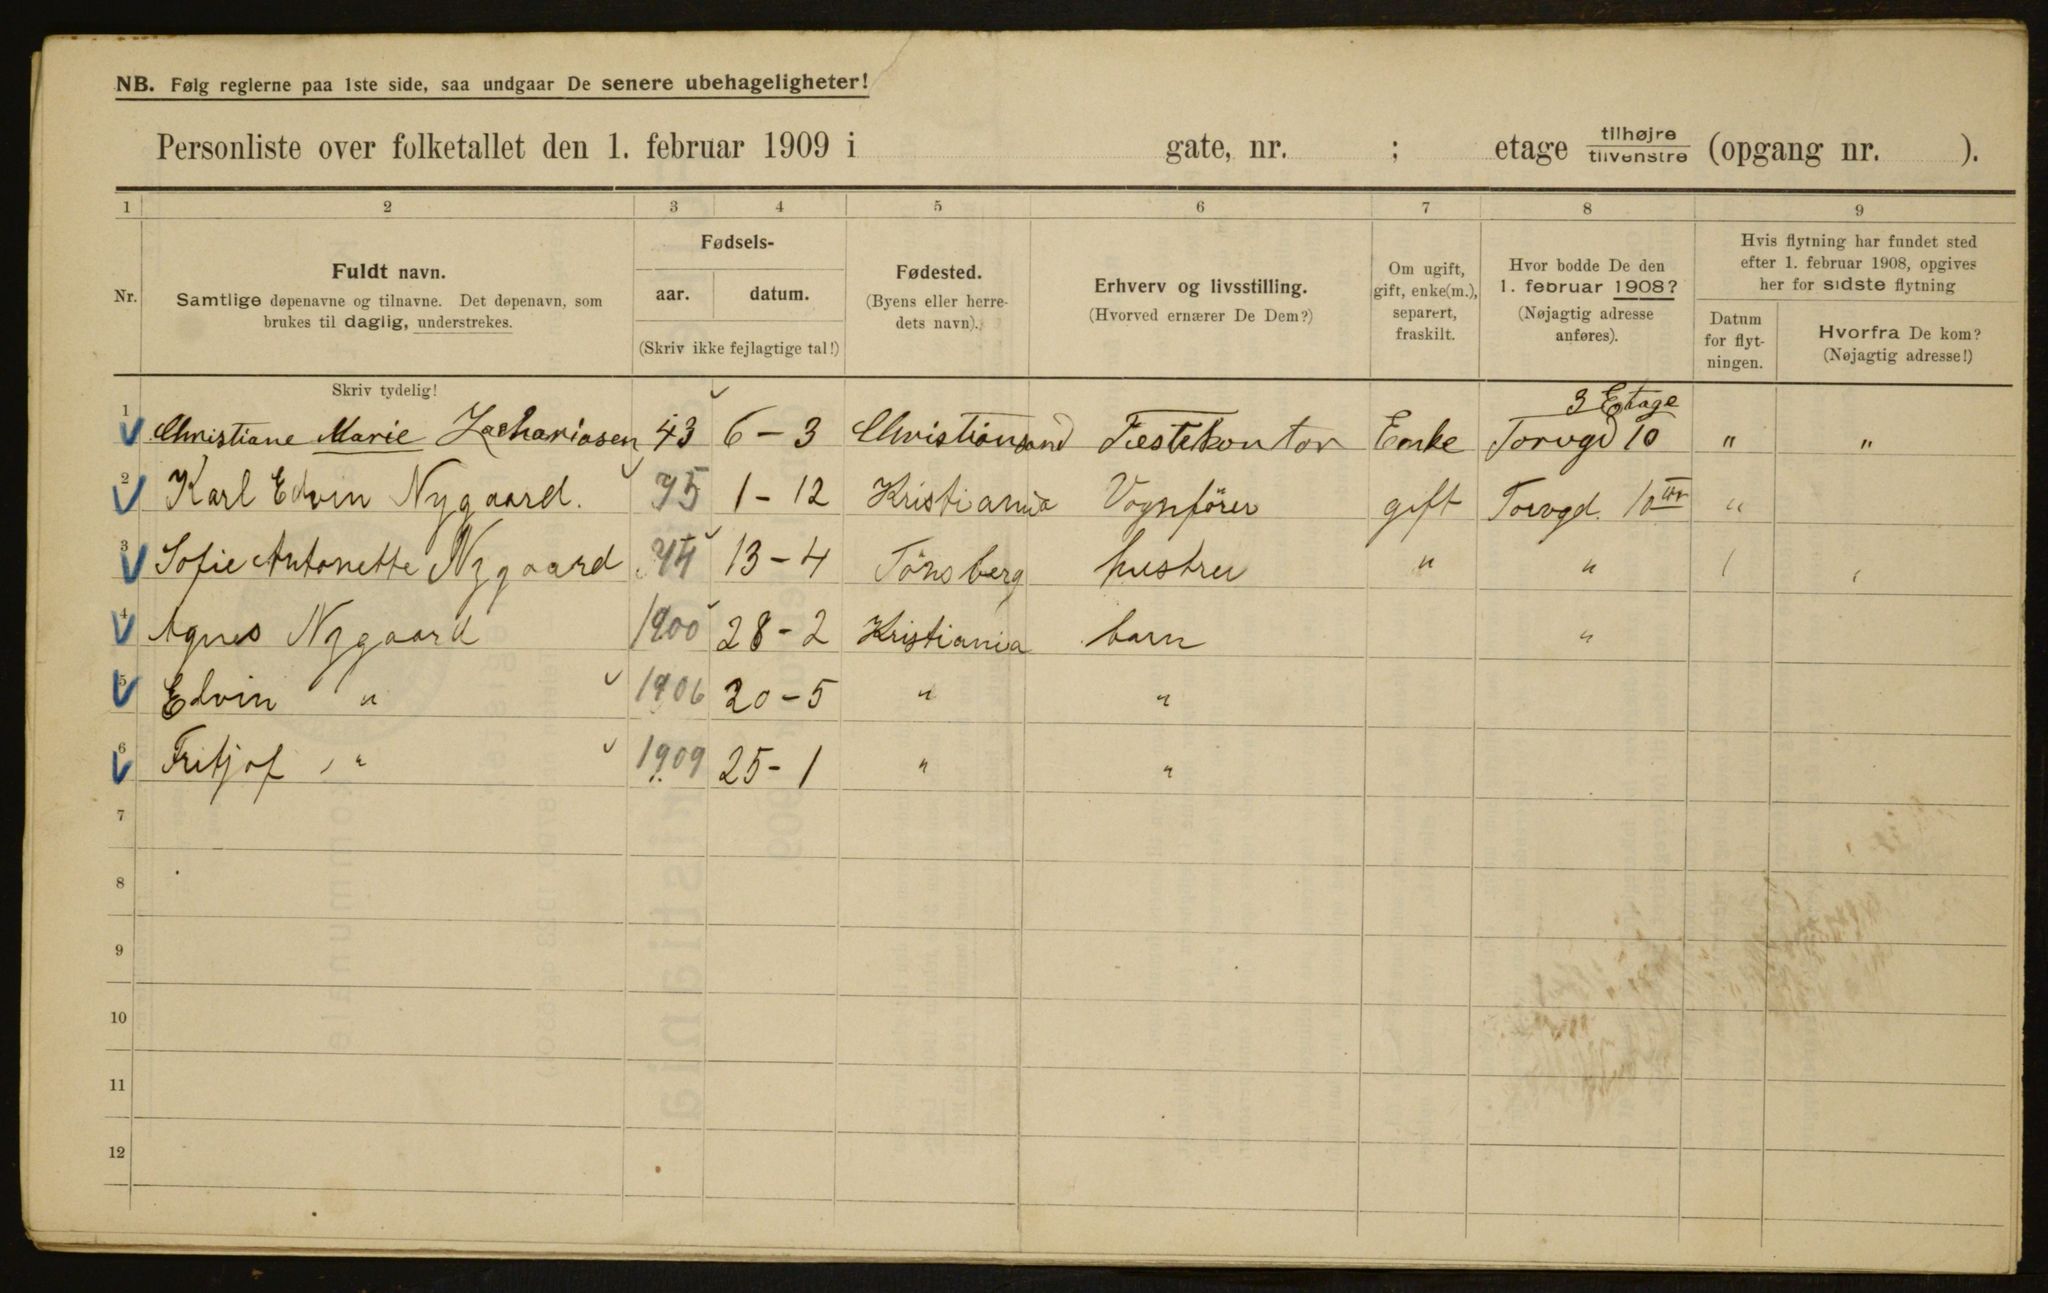 NB. Følg reglerne paa 1ste side, saa undgaar De senere ubehageligheter!
Personliste over folketallet den 1. februar 1909 i gate, nr. ; etage tilhøjre/tilvenstre (opgang nr. ).
1 2 3 4 5 6 7 8 9
Nr.
Fuldt navn.
Samtlige døpenavne og tilnavne. Det døpenavn, som
brukes til daglig, understrekes.
Skriv tydelig!
Fødsels-
aar. datum.
(Skriv ikke fejlagtige tal!)
Fødested.
(Byens eller herre-
dets navn).
Erhverv og livsstilling.
(Hvorved ernærer De Dem?)
Om ugift,
gift, enke(m.),
separert,
fraskilt.
Hvor bodde De den
1. februar 1908?
(Nøjagtig adresse
anføres).
Hvis flytning har fundet sted
efter 1. februar 1908, opgives
her for sidste flytning
Datum
for flyt-
ningen.
Hvorfra De kom?
(Nøjagtig adresse!)
3 Etage
1 Christiane Marie Zachariasen 43 6 - 3 Christiansand Fæstekontor Enke Torvgd 10 " "
2 Karl Edvin Nygaard. 75 1 - 12 Kristiania Vognfører gift Torvgd. 10 "
3 Sofie Antonette Nygaard 13 - 4 Tönsberg hustru " "
4 Agnes Nygaard 1900 28 - 2 Kristiania barn "
5 Edvin " 1906 20 - 5 " "
6 Fritjof " 1909 25 - 1 " "
7
8
9
10
11
12